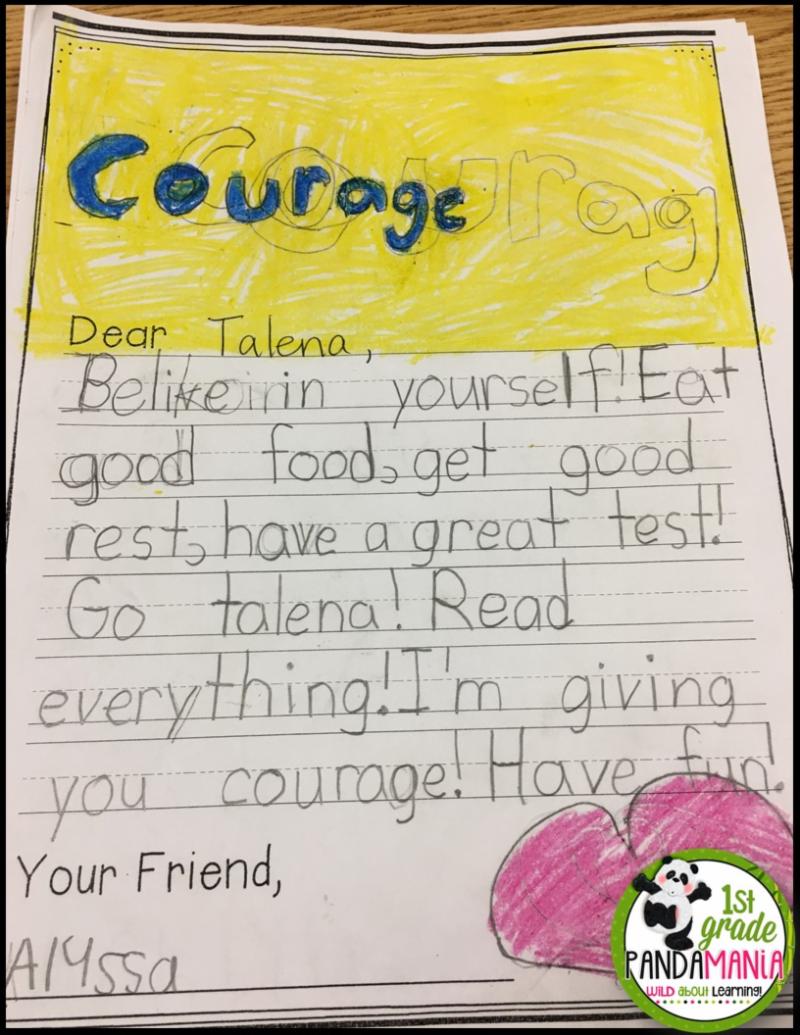 Courage
Courag
Dear Talena,
Belikeirin yourself! Eat
good food, get good
rest, have a great test!
Go talena! Read
everything! I'm giving
you courage! Have fun!
Your Friend,
Alyssa
1st
grade
PANDAMANIA
WILD about Learning!